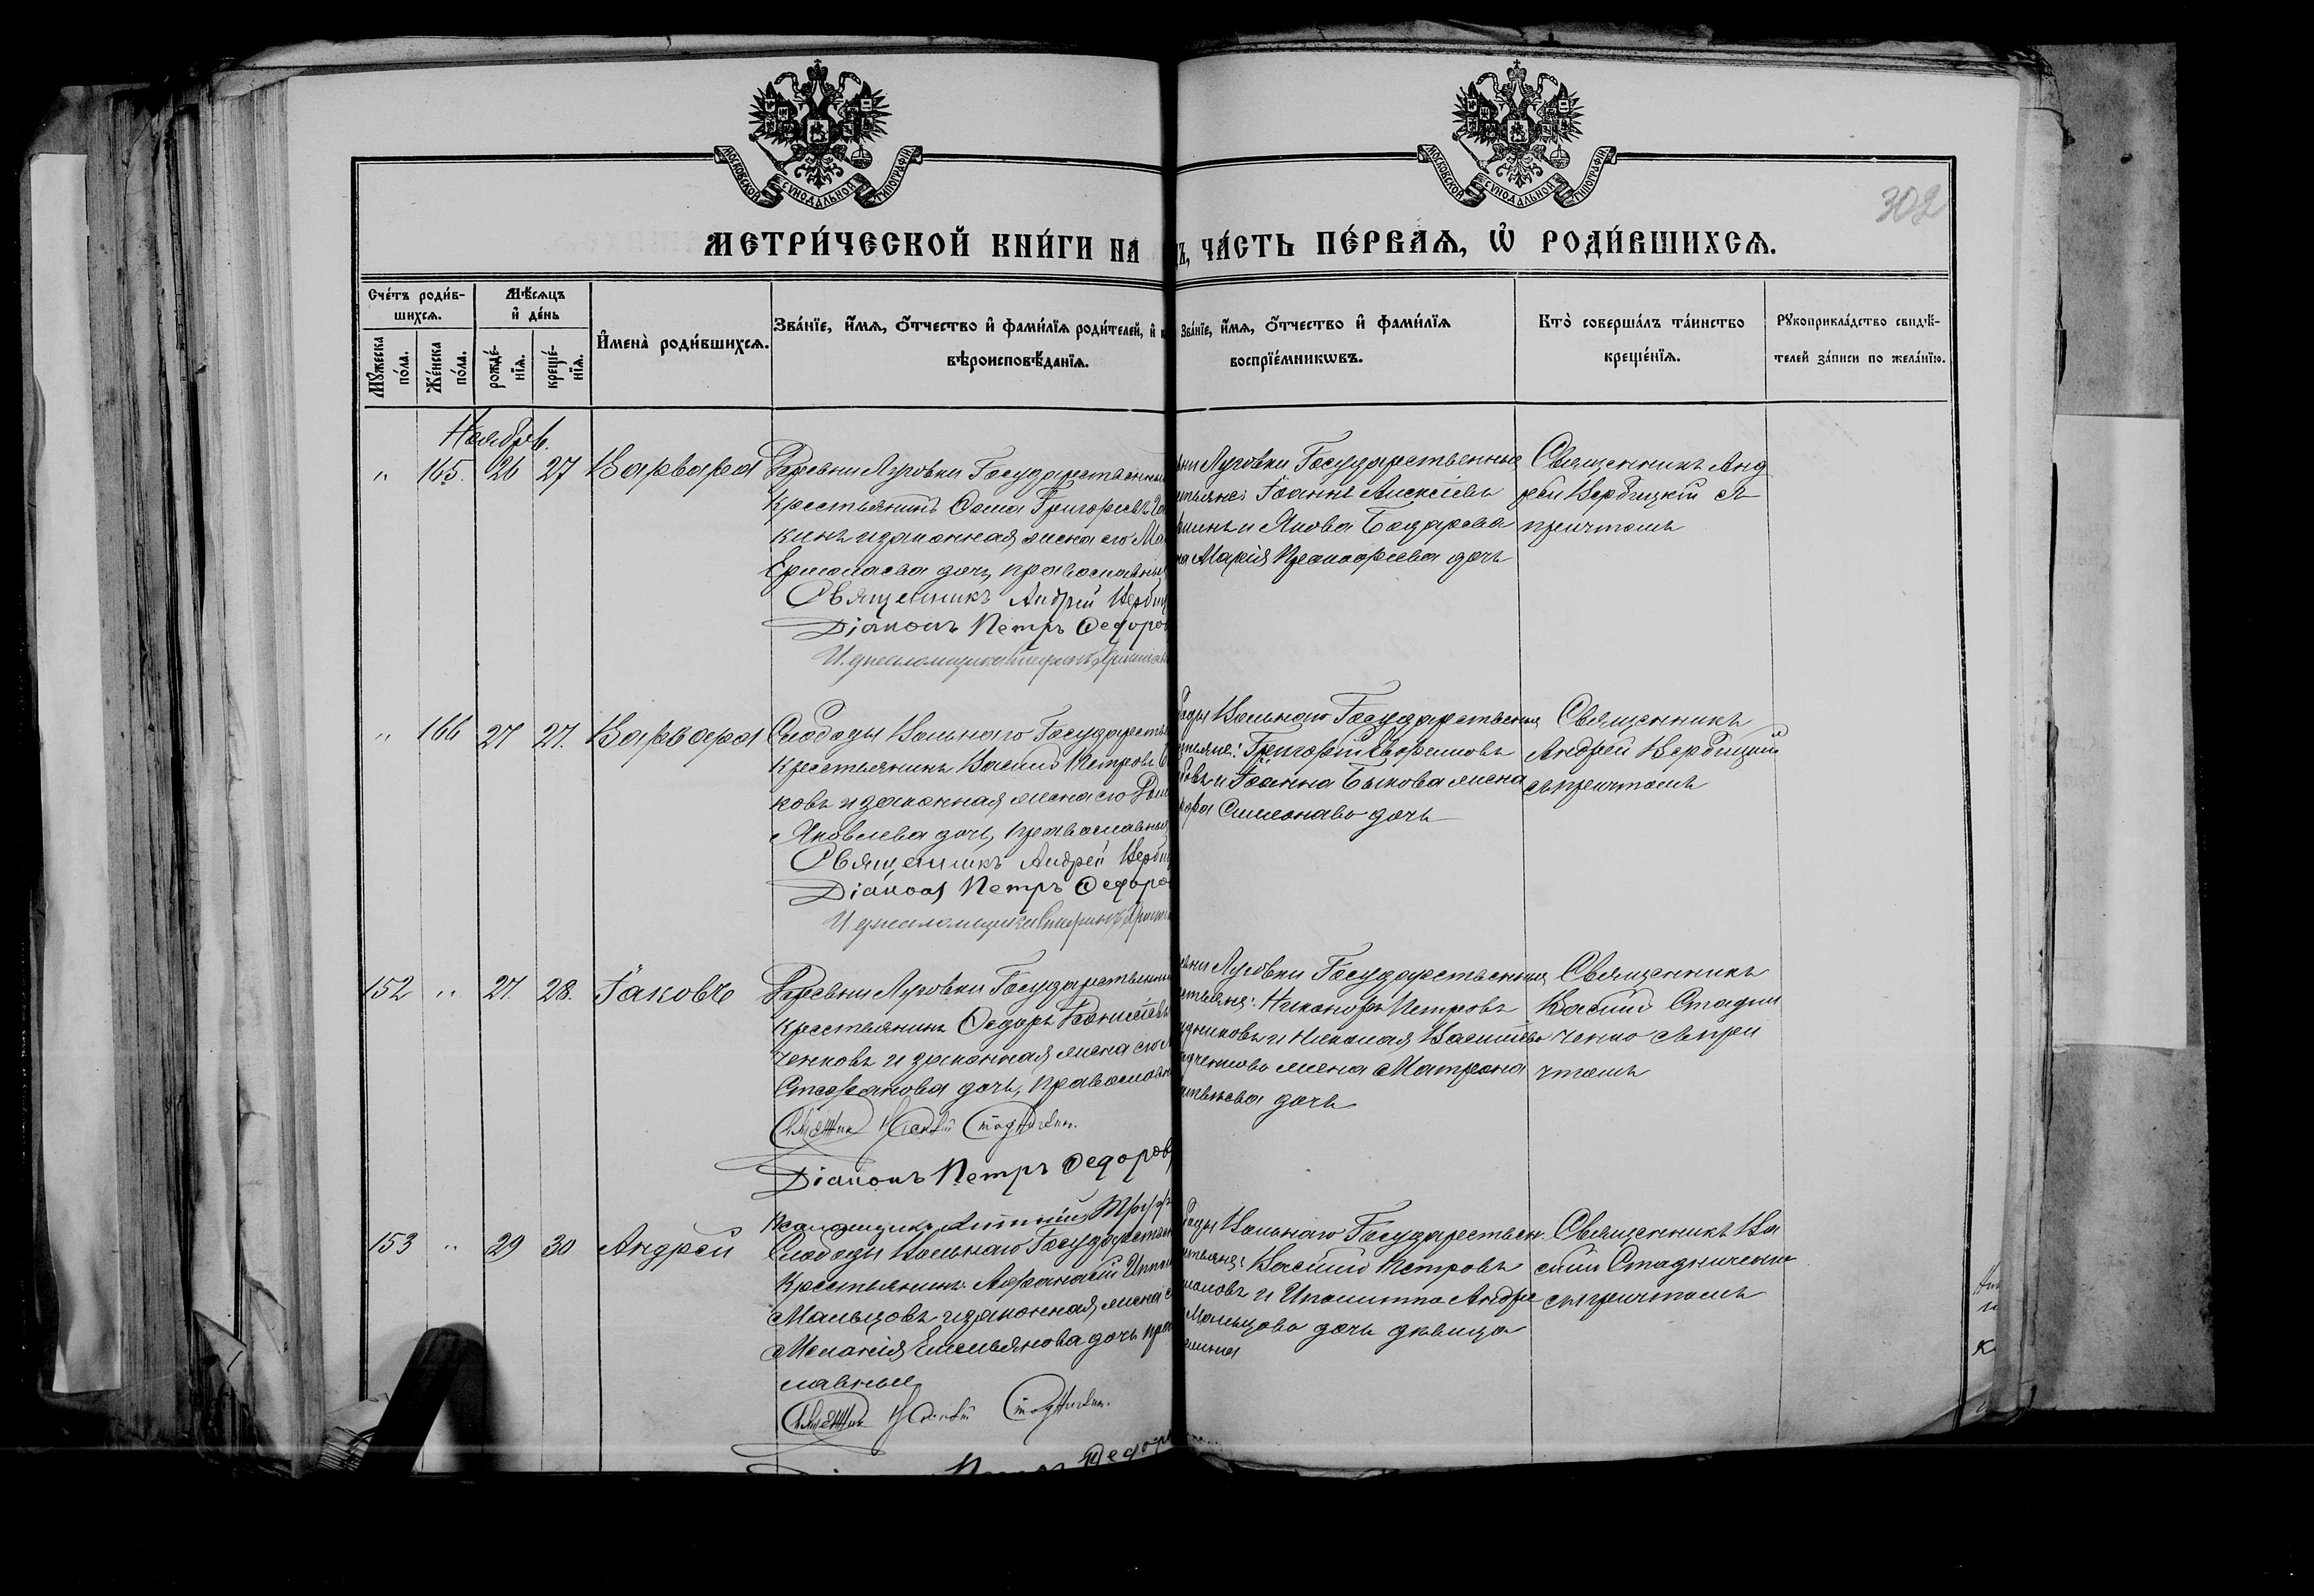 МОСКОВСКОЙ СѴНОДАЛЬНОЙ ТИПОГРАФІИ
МОСКОВСКОЙ СѴНОДАЛЬНОЙ ТИПОГРАФІИ
302
МЕТРИ́ЧЕСКОЙ КНИ́ГИ НА
Ъ, ЧА́СТЬ ПЕ́РВАѦ, Ѡ҆ РОДИ́ВШИХСѦ.
Сче́тъ роди́в-
шихсѧ.
Мꙋ́жеска по́ла.
Же́нска по́ла.
Мѣ́сѧцъ
и҆ де́нь
рожде́-нїѧ.
креще́-нїѧ.
И҆мена̀ роди́вшихсѧ.
Зва́нїе, и҆́мѧ, ѻ҆́тчество и҆ фами́лїѧ роди́телей, и҆
вѣроисповѣ́данїѧ.
Зва́нїе, и҆́мѧ, ѻ҆́тчество и҆ фами́лїѧ
воспрїе́мникѡвъ.
Кто̀ соверша́лъ та́инство
креще́нїѧ.
Рꙋкоприкла́дство свидѣ́-
телей за́писи по жела́нїю.
Ноябрь.
„ 165. 26 27 Варвара
Деревни Луговки Государственный
Крестьянинъ Фома Григорьевъ
кинъ и законная жена его
Ермолаева дочь, православные
Священникъ Андрей Верби
Діаконъ Петръ Федоров
И. д. псаломщика Стефанъ
Луговки Государственные
Іоаннъ Алексіевъ
и Якова Бочарова
Марія Прокофіева дочь
Священникъ Анд
рей Вербицкій съ
причтомъ
„ 166 27 27. Варвара
Слободы Вольнаго Государств
Крестьянинъ Василій Петровъ
ковъ и законная жена его
Яковлева дочь, православные
Священникъ Андрей Верби
Діаконъ Петръ Федоро
И. д. псаломщика Стефанъ
Вольнаго Государственные
Григорій
и Іоанна Быкова жена
Симеонова дочь
Священникъ
Андрей Вербицкій
съ причтомъ
152 „ 27. 28. Іаковъ
Деревни Луговки Государственный
Крестьянинъ Федоръ
ченковъ и законная жена его
Стефанова дочь, православн
Священник Василій Стадниченко
Діаконъ Петръ Федоров
Псаломщикъ
Луговки Государственные
Никаноръ Петровъ
и Николая Василіева
жена Матрона
дочь
Священникъ
Василій Стадни
ченко съ при
чтомъ
153 „ 29 30 Андрей
Слободы Вольнаго Государствен
Крестьянинъ Афанасій
Мальцовъ и законная жена
Меланія Емельянова дочь пра
славные
Священник Василій Стадниченко
Вольнаго Государствен.
Василій Петровъ
и Андре
Мальцова дочь девица
Священникъ Ва
силій Стадниченко
съ причтомъ